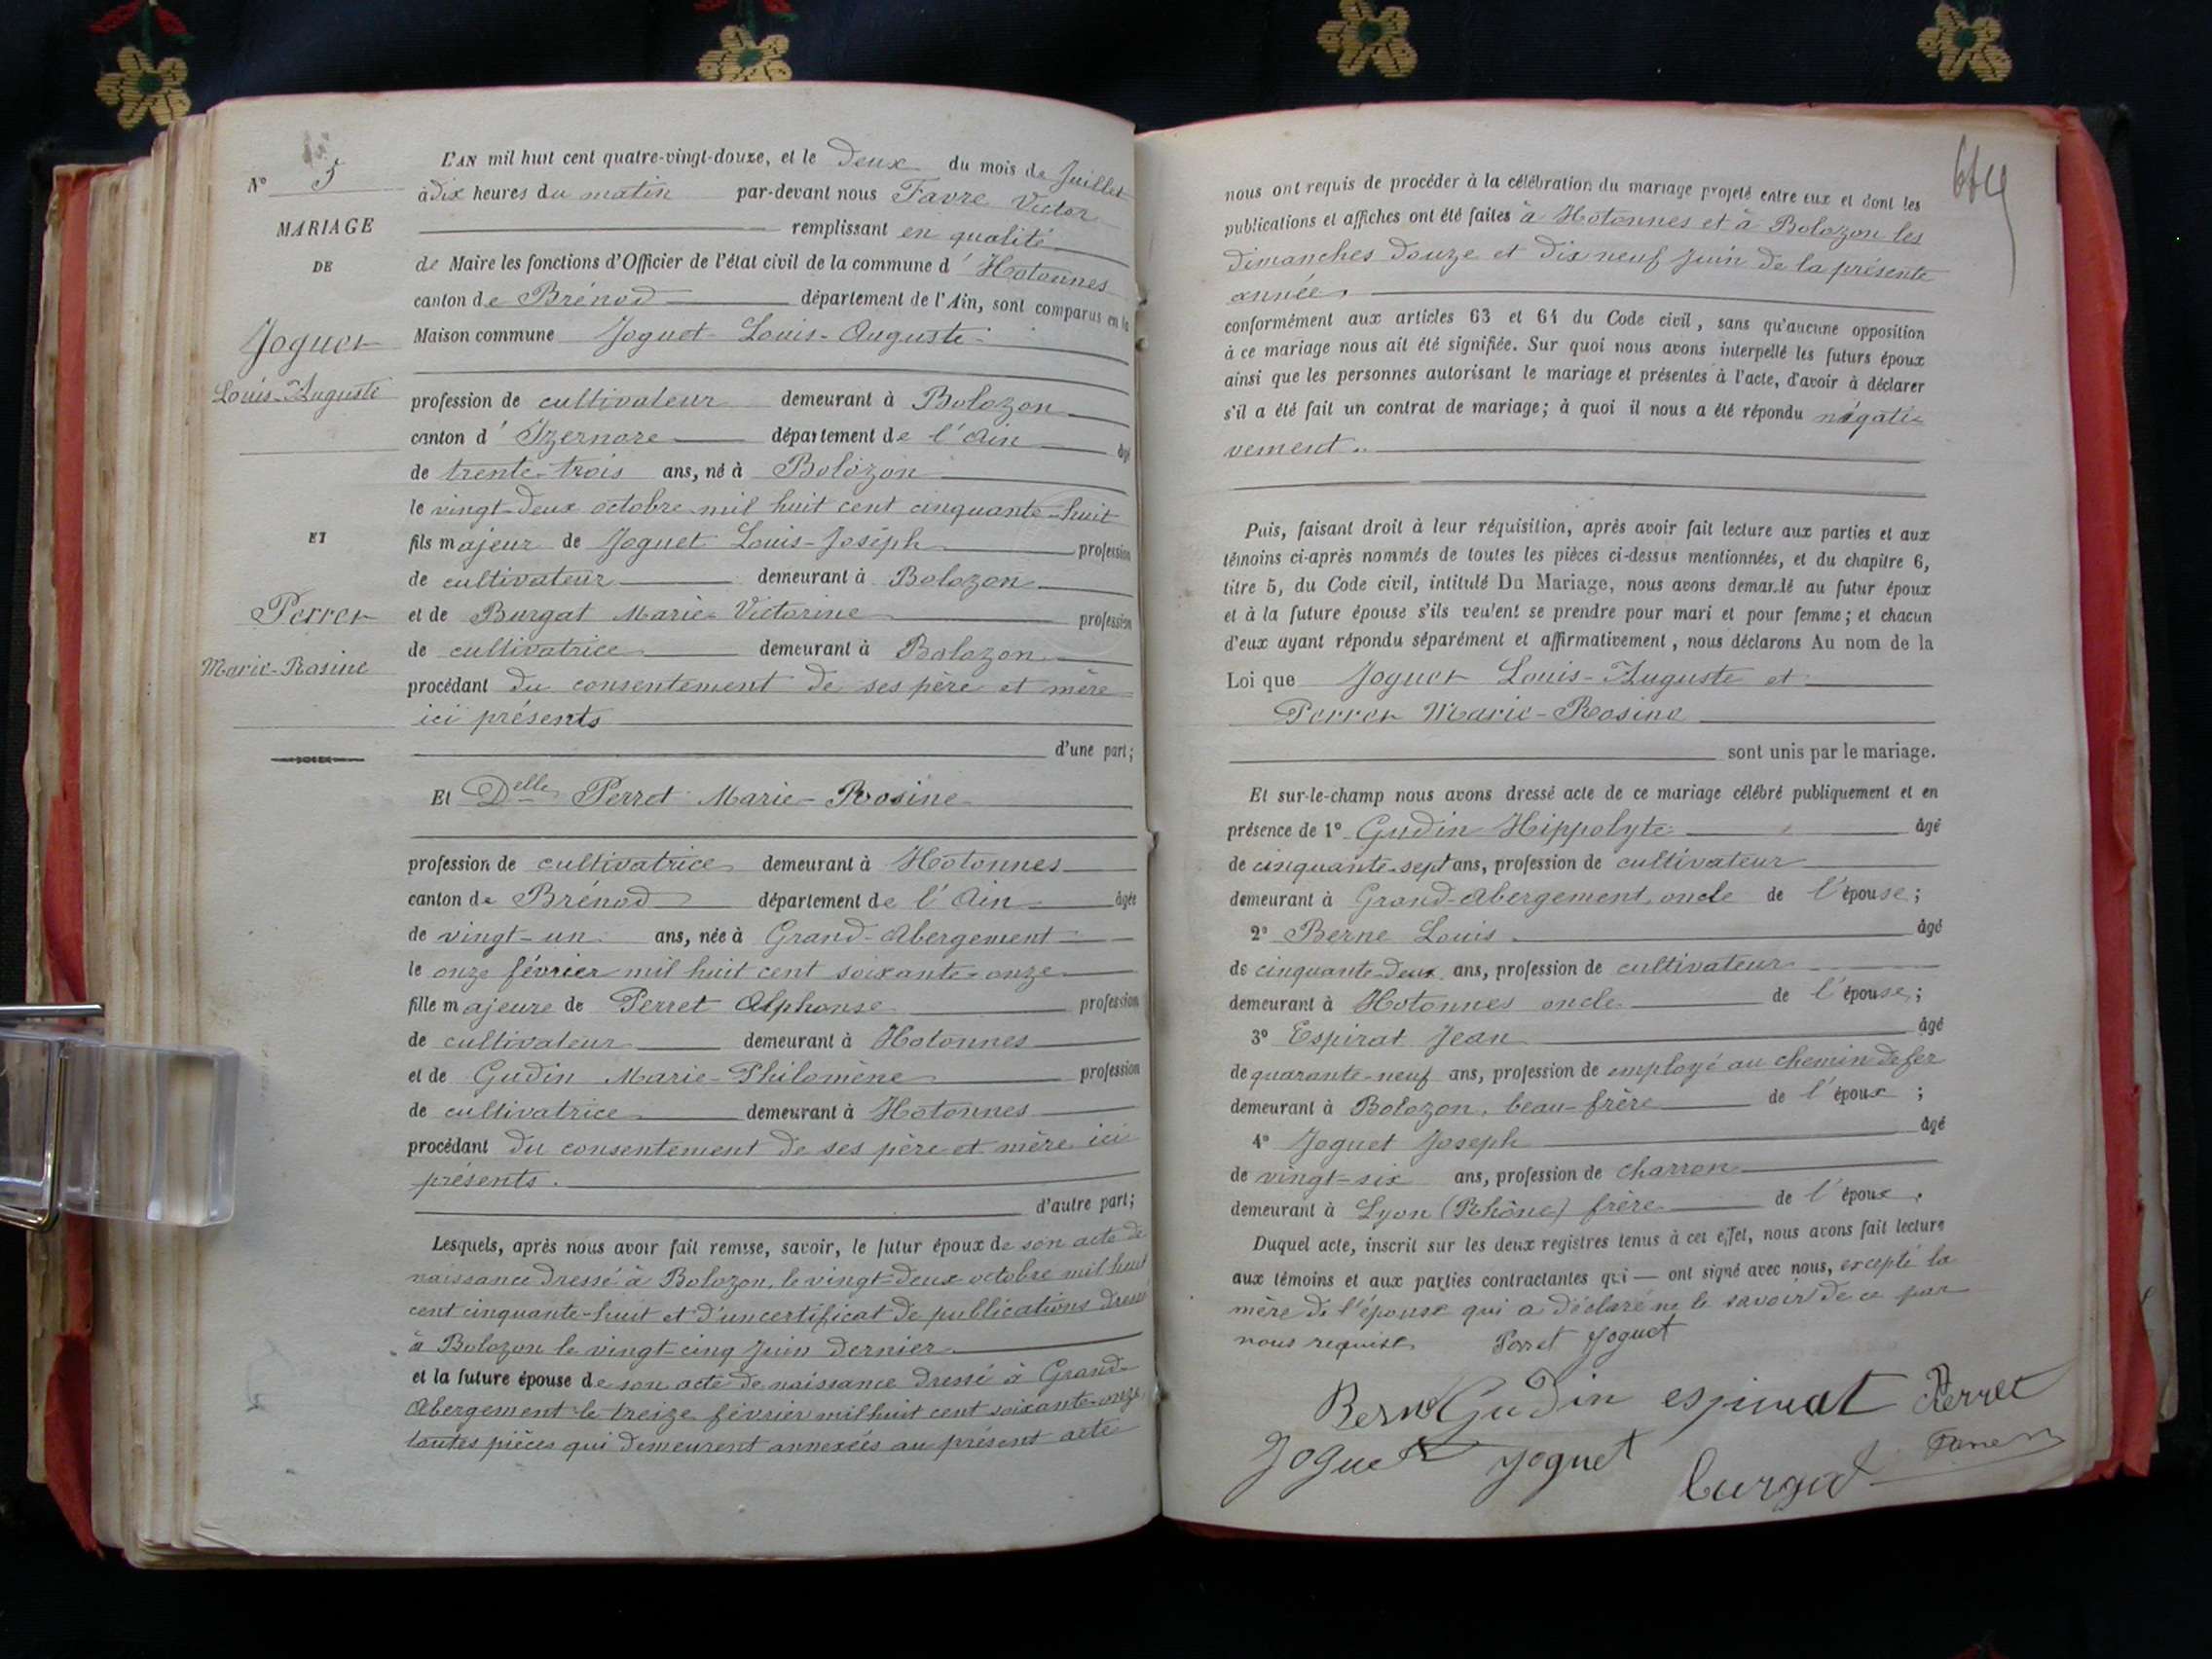 N° 5
MARIAGE
DE
Joguet
Louis-Auguste
ET
Perret
Marie-Rosine
L'AN mil huit cent quatre-vingt-douze, et le deux du mois de Juillet
à dix heures du matin par-devant nous Favre Victor
remplissant en qualité
de Maire les fonctions d'Officier de l'état civil de la commune d'Hotonnes
canton de Brénod département de l'Ain, sont comparus en la
Maison commune Joguet Louis-Auguste
profession de cultivateur demeurant à Bolozon
canton d'Izernore département de l'Ain âgé
de trente-trois ans, né à Bolozon
le vingt-deux octobre mil huit cent cinquante-huit
fils majeur de Joguet Louis-Joseph profession
de cultivateur demeurant à Bolozon
et de Burgat Marie-Victorine profession
de cultivatrice demeurant à Bolozon
procédant du consentement de ses père et mère
ici présents
d'une part;
Et Delle Perret Marie-Rosine
profession de cultivatrice demeurant à Hotonnes
canton de Brénod département de l'Ain âgée
de vingt-un ans, née à Grand-Abergement
le onze février mil huit cent soixante-onze
fille majeure de Perret Alphonse profession
de cultivateur demeurant à Hotonnes
et de Gudin Marie-Philomène profession
de cultivatrice demeurant à Hotonnes
procédant du consentement de ses père et mère ici
présents.
d'autre part;
Lesquels, après nous avoir fait remise, savoir, le futur époux de son acte de
naissance dressé à Bolozon, le vingt-deux octobre mil huit
cent cinquante-huit et d'un certificat de publications dressé
à Bolozon le vingt-cinq Juin dernier
et la future épouse de son acte de naissance dressé à Grand-
Abergement le treize février mil huit cent soixante-onze
toutes pièces qui demeurent annexées au présent acte
nous ont requis de procéder à la célébration du mariage projeté entre eux et dont les
publications et affiches ont été faites à Hotonnes et à Bolozon les
dimanches douze et dix neuf Juin de la présente
année.
conformément aux articles 63 et 64 du Code civil, sans qu'aucune opposition
à ce mariage nous ait été signifiée. Sur quoi nous avons interpellé les futurs époux
ainsi que les personnes autorisant le mariage et présentes à l'acte, d'avoir à déclarer
s'il a été fait un contrat de mariage; à quoi il nous a été répondu négati-
vement.
Puis, faisant droit à leur réquisition, après avoir fait lecture aux parties et aux
témoins ci-après nommés de toutes les pièces ci-dessus mentionnées, et du chapitre 6,
titre 5, du Code civil, intitulé Du Mariage, nous avons demandé au futur époux
et à la future épouse s'ils veulent se prendre pour mari et pour femme; et chacun
d'eux ayant répondu séparément et affirmativement, nous déclarons Au nom de la
Loi que Joguet Louis-Auguste et
Perret Marie-Rosine
sont unis par le mariage.
Et sur-le-champ nous avons dressé acte de ce mariage célébré publiquement et en
présence de 1° Gudin Hippolyte âgé
de cinquante-sept ans, profession de cultivateur
demeurant à Grand-Abergement, oncle de l'épouse;
2° Berne Louis âgé
de cinquante-deux ans, profession de cultivateur
demeurant à Hotonnes oncle de l'épouse;
3° Espirat Jean âgé
de quarante-neuf ans, profession de employé au chemin de fer
demeurant à Bolozon, beau-frère de l'époux;
4° Joguet Joseph âgé
de vingt-six ans, profession de charron
demeurant à Lyon (Rhône) frère de l'époux.
Duquel acte, inscrit sur les deux registres tenus à cet effet, nous avons fait lecture
aux témoins et aux parties contractantes qui ont signé avec nous, excepté la
mère de l'épouse qui a déclaré ne le savoir de ce par
nous requise. Perret Joguet
Berne Gudin espirat Perret
Joguet Joguet burgat Favre